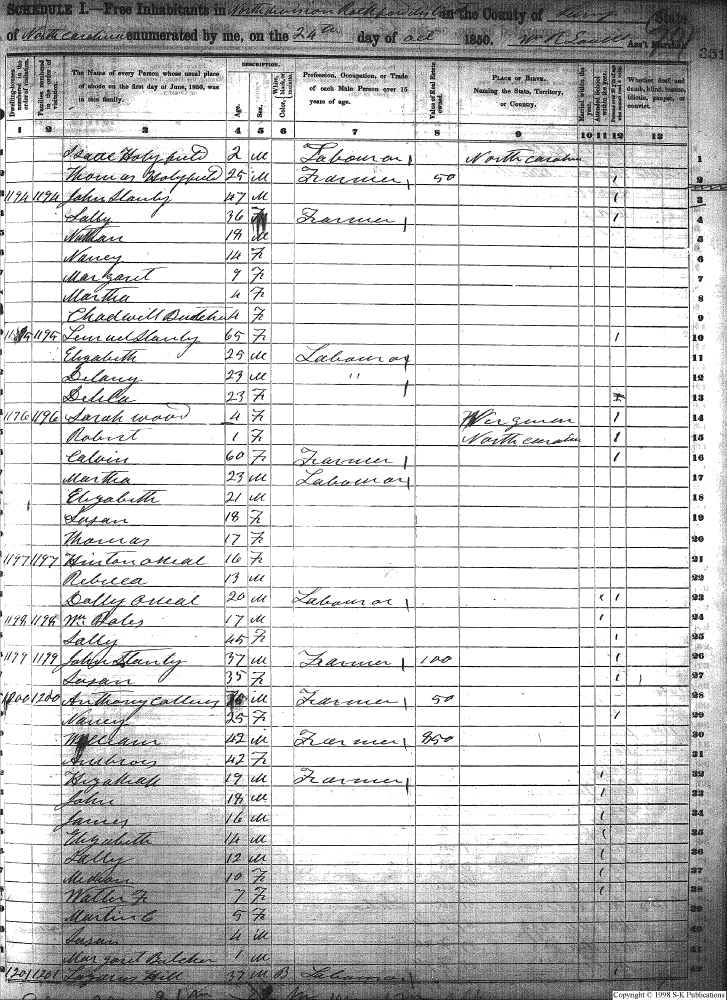 SCHEDULE I.—Free Inhabitants in North division in the County of State
of North carolina enumerated by me, on the 24th day of Oct 1850. Wm R Ass't Marshal.
351
Dwelling-houses numbered in the order of visitation.
Families numbered in the order of visitation.
The Name of every Person whose usual place of abode on the first day of June, 1850, was in this family.
DESCRIPTION.
Age.
Sex.
Color, White, black, or mulatto.
Profession, Occupation, or Trade of each Male Person over 15 years of age.
Value of Real Estate owned.
PLACE OF BIRTH. Naming the State, Territory, or Country.
Married within the year.
Attended School within the year.
Whether deaf and dumb, blind, insane, idiotic, pauper, or convict.
1 2 3 4 5 6 7 8 9 10 11 12 13
Isaac Holyfield 2 M Labouror North carolina 1
Thomas Holyfield 25 M Farmer 50 2
1194 1194 John Stanly 47 M 3
Sally 36 F Farmer 4
Nathan 18 M 5
Nancy 14 F 6
Margaret 9 F 7
Martha 4 F 8
Chadwill 4 F 9
1195 Lemuel Stanly 65 F 10
Elizabeth 25 M Labouror 11
Delany 23 M " 12
23 F 13
1196 1196 Sarah wood 4 F 14
Robert 1 F North carolina 15
Calvin 60 F Farmer 16
Martha 23 M Labouror 17
Elizabeth 21 M 18
Susan 18 F 19
Thomas 17 F 20
1197 1197 Hinton oneal 16 F 21
Rebecca 13 M 22
Dolly Oneal 20 M Labouror 23
1198 1198 Wm 17 M 24
Sally 45 F 25
1199 1199 John Stanly 37 M Farmer 100 26
Susan 35 F 27
1200 1200 Anthony M Farmer 50 28
Nancy 25 F 29
William 42 M Farmer 30
42 F 31
19 M Farmer 32
John 18 M 33
James 16 M 34
Elizabeth 14 M 35
Sally 12 M 36
10 F 37
Walter F 7 F 38
Martin C 5 F 39
Susan 4 M 40
Margaret Butcher 1 M 41
1201 1201 Lazarus Hill 37 M B Labouror 42
Copyright © 1998 S-K Publications